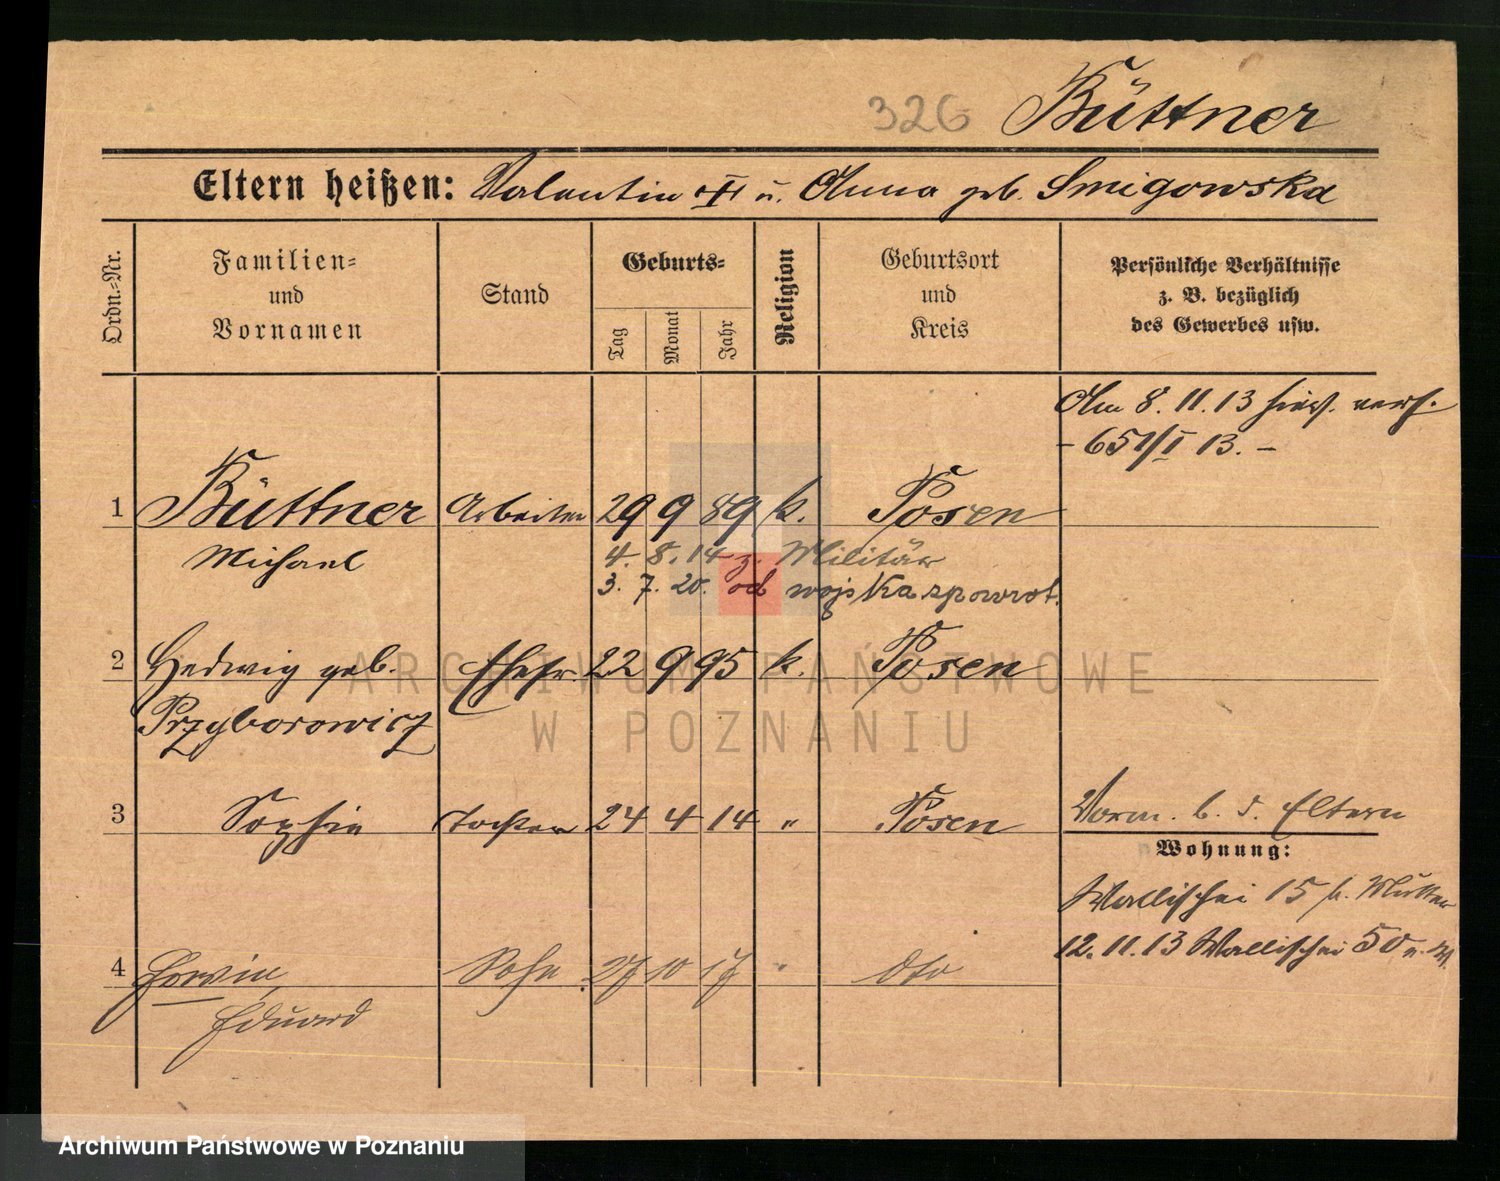 326 Büttner
Eltern heißen: Valentin u. Anna geb. Smigowska
Ordn.-Nr.
Familien- und Vornamen
Stand
Geburts-
Tag Monat Jahr
Religion
Geburtsort und Kreis
Persönliche Verhältnisse
z. B. bezüglich
des Gewerbes usw.
Am 8. 11. 13 verh.
- 651/I 13. -
1 Büttner Arbeiter 29 9 89 k. Posen
Michael
4. 8. 14 z. Militär
3. 7. 20. od wojska zpowrot.
2 Hedwig geb. Ehefr. 22 9 95 k. Posen
Przyborowicz
3 Sophie Tochter 24 4 14 " Posen
Vorm. b. d. Eltern
Wohnung:
Wallischei 15 b. Mutter
12. 11. 13 Wallischei 50
4 Erwin, Sohn 27 10 17 " dto
Eduard
ARCHIWUM PAŃSTWOWE
W POZNANIU
Archiwum Państwowe w Poznaniu